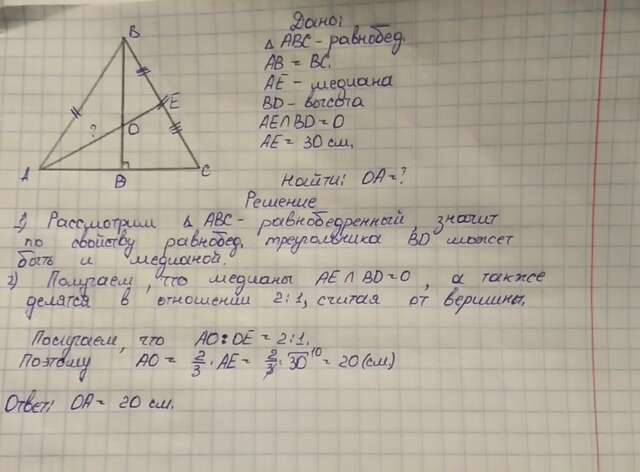 B
E
?
O
A
B
C
Дано:
Δ ABC - равнобед.
AB = BC.
AE - медиана
BD - высота
AE∩BD=O
AE = 30 см.
Найти: OA=?
Решение
1) Рассмотрим Δ ABC - равнобедренный, значит
по свойству равнобед. треугольника BD может
быть и медианой.
2) Получаем, что медианы AE∩BD=O, а также
делятся в отношении 2:1, считая от вершины.
Получаем, что AO:OE = 2:1.
Поэтому AO = 2/3 · AE = 2/3 · 30 10 = 20 (см)
Ответ: OA = 20 см.